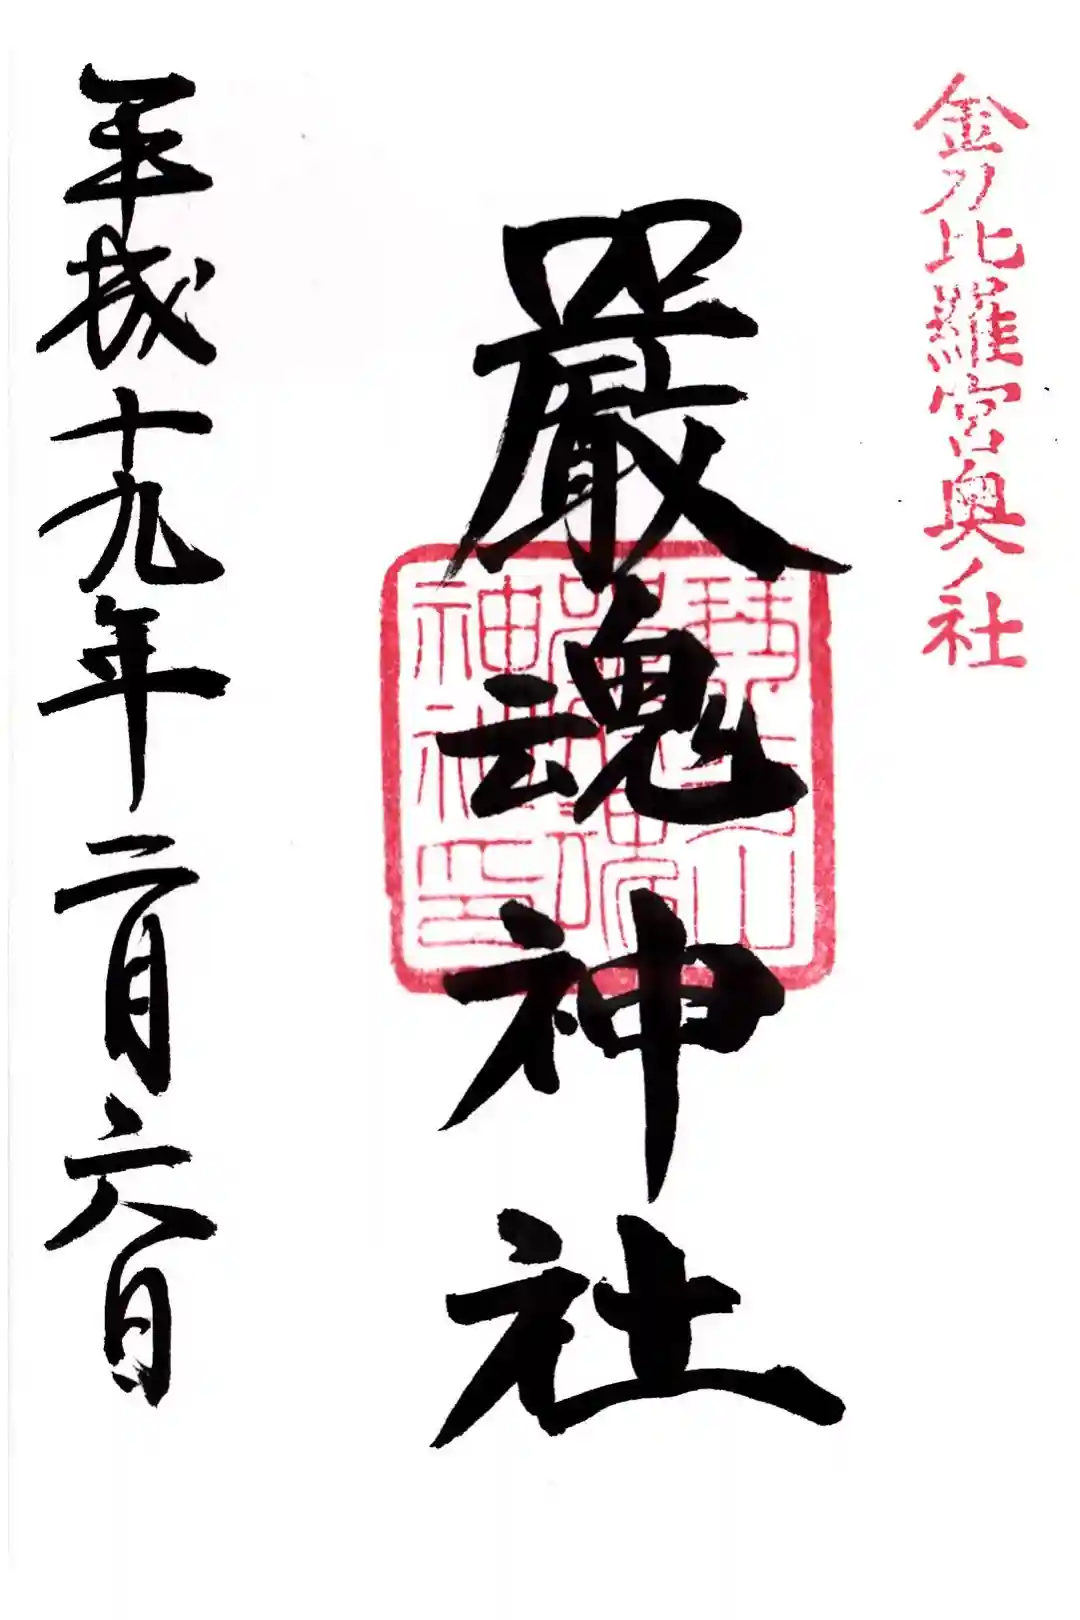 金刀比羅宮奥ノ社
嚴魂神社
平成十九年二月六日